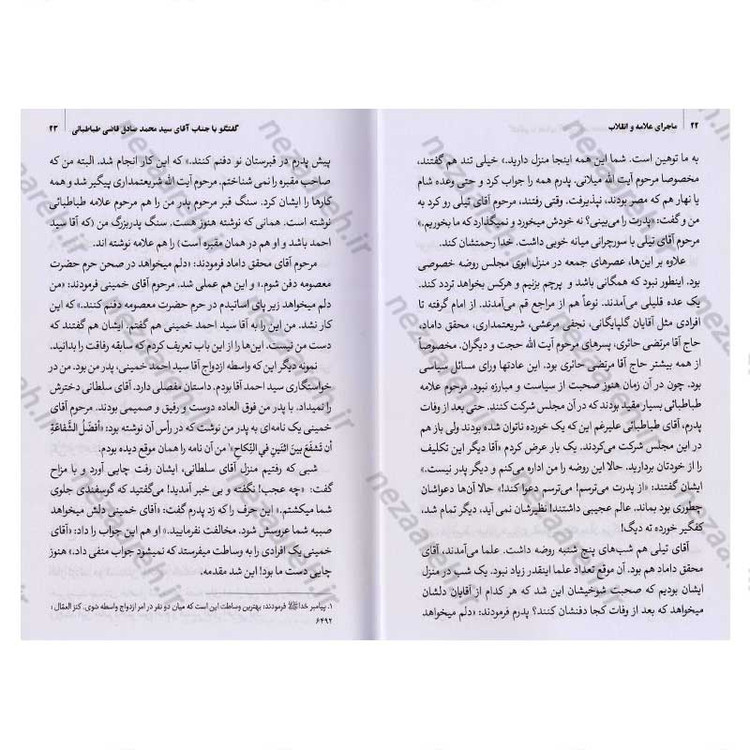 ۲۲ | ماجرای علامه و انقلاب
به ما توهین است. شما این همه اینجا منزل دارید.» خیلی تند هم گفتند،
مخصوصا مرحوم آیت الله میلانی. پدرم همه را جواب کرد و حتی وعده شام
یا نهار هم که مصر بودند، نپذیرفت. وقتی رفتند، مرحوم آقای تیلی رو کرد به
من و گفت: «پدرت را می‌بینی؟ نه خودش میخورد و نمیگذارد که ما بخوریم.»
مرحوم آقای تیلی با سورچرانی میانه خوبی داشت. خدا رحمتشان کند.
علاوه بر این‌ها، عصرهای جمعه در منزل ابوی مجلس روضه خصوصی
بود. اینطور نبود که همگانی باشد و پرچم بزنیم و هرکس بخواهد تردد کند.
یک عده قلیلی می‌آمدند. نوعاً هم از مراجع قم می‌آمدند. از امام گرفته تا
افرادی مثل آقایان گلپایگانی، نجفی مرعشی، شریعتمداری، محقق داماد،
حاج آقا مرتضی حائری، پسرهای مرحوم آیت الله حجت و دیگران. مخصوصاً
از همه بیشتر حاج آقا مرتضی حائری بود. این عادتها ورای مسائل سیاسی
بود. چون در آن زمان هنوز صحبت از سیاست و مبارزه نبود. مرحوم علامه
طباطبائی بسیار مقید بودند که در آن مجلس شرکت کنند. حتی بعد از وفات
پدرم، آقای طباطبائی علیرغم این که یک خورده ناتوان شده بودند ولی باز هم
در این مجلس شرکت می‌کردند. یک بار عرض کردم «آقا دیگر این تکلیف
را از خودتان بردارید. حالا این روضه را من اداره می‌کنم و دیگر پدر نیست.»
ایشان گفتند: «از پدرت می‌ترسم! می‌ترسم دعوا کند!» حالا آن‌ها دعواشان
چطوری بود بماند. عالم عجیبی داشتند! نظیرشان نمی آید، دیگر تمام شد،
کفگیر خورده ته دیگ!
آقای تیلی هم شب‌های پنج شنبه روضه داشت. علما می‌آمدند، آقای
محقق داماد هم بود. آن موقع تعداد علما اینقدر زیاد نبود. یک شب در منزل
ایشان بودیم که صحبت شوخیشان این شد که هر کدام از آقایان دلشان
میخواهد که بعد از وفات کجا دفنشان کنند؟ پدرم فرمودند: «دلم میخواهد
گفتگو با جناب آقای سید محمد صادق قاضی طباطبائی | ۲۳
پیش پدرم در قبرستان نو دفنم کنند.» که این کار انجام شد. البته من که
صاحب مقبره را نمی شناختم. مرحوم آیت الله شریعتمداری پیگیر شد و همه
کارها را ایشان کرد. سنگ قبر مرحوم پدر من را هم مرحوم علامه طباطبائی
نوشته است. همانی که نوشته هنوز هست. سنگ پدربزرگ من (که آقا سید
احمد باشد و او هم در همان مقبره است) را هم علامه نوشته اند.
مرحوم آقای محقق داماد فرمودند: «دلم میخواهد در صحن حرم حضرت
معصومه دفن شوم.» و این هم عملی شد. مرحوم آقای خمینی فرمودند: «من
دلم میخواهد زیر پای اساتیدم در حرم حضرت معصومه دفنم کنند.» که این
کار نشد. من این را به آقا سید احمد خمینی هم گفتم. ایشان هم گفتند که
دست من نیست. این‌ها را از این باب تعریف کردم که سابقه رفاقت را بدانید.
نمونه دیگر این که واسطه ازدواج آقا سید احمد خمینی، پدر من بود. من در
خواستگاری سید احمد آقا بودم. داستان مفصلی دارد. آقای سلطانی دخترش
را نمیداد. با پدر من فوق العاده دوست و رفیق و صمیمی بودند. مرحوم آقای
خمینی یک نامه‌ای به پدر من نوشت که در رأس آن نوشته بود: «أفضَلُ الشَّفاعَةِ
أن تَشفَعَ بینَ اثنَینِ فی النِّکاحِ»۱ من آن نامه را همان موقع دیده بودم.
شبی که رفتیم منزل آقای سلطانی، ایشان رفت چایی آورد و با مزاح
گفت: «چه عجب! نگفته و بی خبر آمدید! می‌گفتید که گوسفندی جلوی
شما میکشتم.» این حرف را که زد پدرم گفت: «آقای خمینی دلش میخواهد
صبیه شما عروسش شود. مخالفت نفرمایید.» او هم این جواب را داد: «آقای
خمینی یک افرادی را به وساطت میفرستد که نمیشود جواب منفی داد.» هنوز
چایی دست ما بود! این شد مقدمه.
۱. پیامبر خدا ﷺ فرمودند: بهترین وساطت این است که میان دو نفر در امر ازدواج واسطه شوی. کنز العمّال :
۶۴۹۲
nezaareh.ir